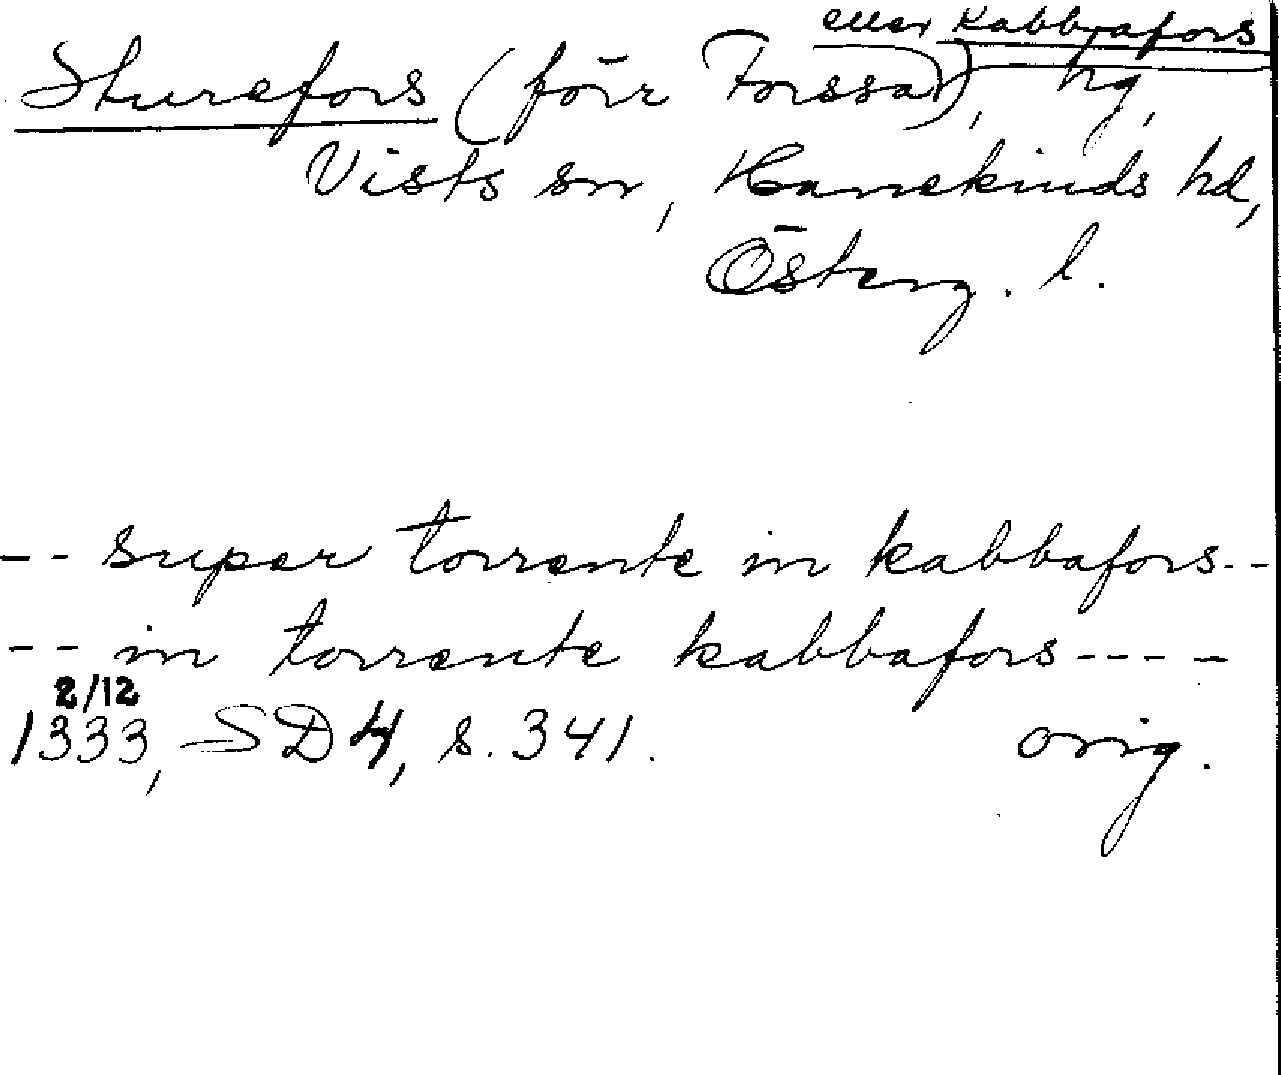 eller Kabbafors
Sturefors (förr Forssa), hg,
Vists sn, Hanekinds hd,
Österg. l.
-- super torrente in kabbafors--
-- in torrente kabbafors----
2/12
1333, SD 4, s. 341. orig.